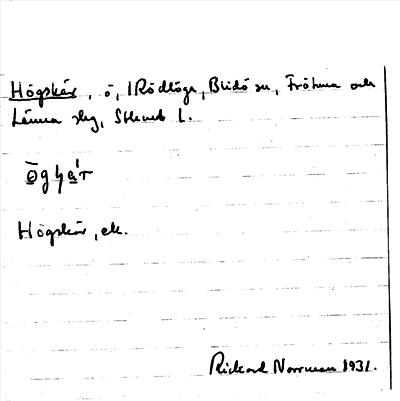 Högskär, ö, i Rödlöga, Blidö sn, Frötuna och
Länna slg, Sthlms l.
Högskär, ek.
Rickard Norrman 1931.